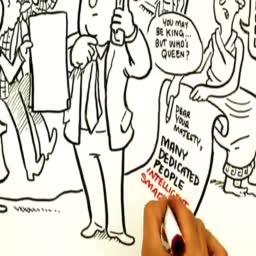 YOU MAY
BE KING...
BUT WHO'S
QUEEN?
DEAR
YOUR
MAJESTY,
MANY
DEDICATED
PEOPLE
INTELLIGENT